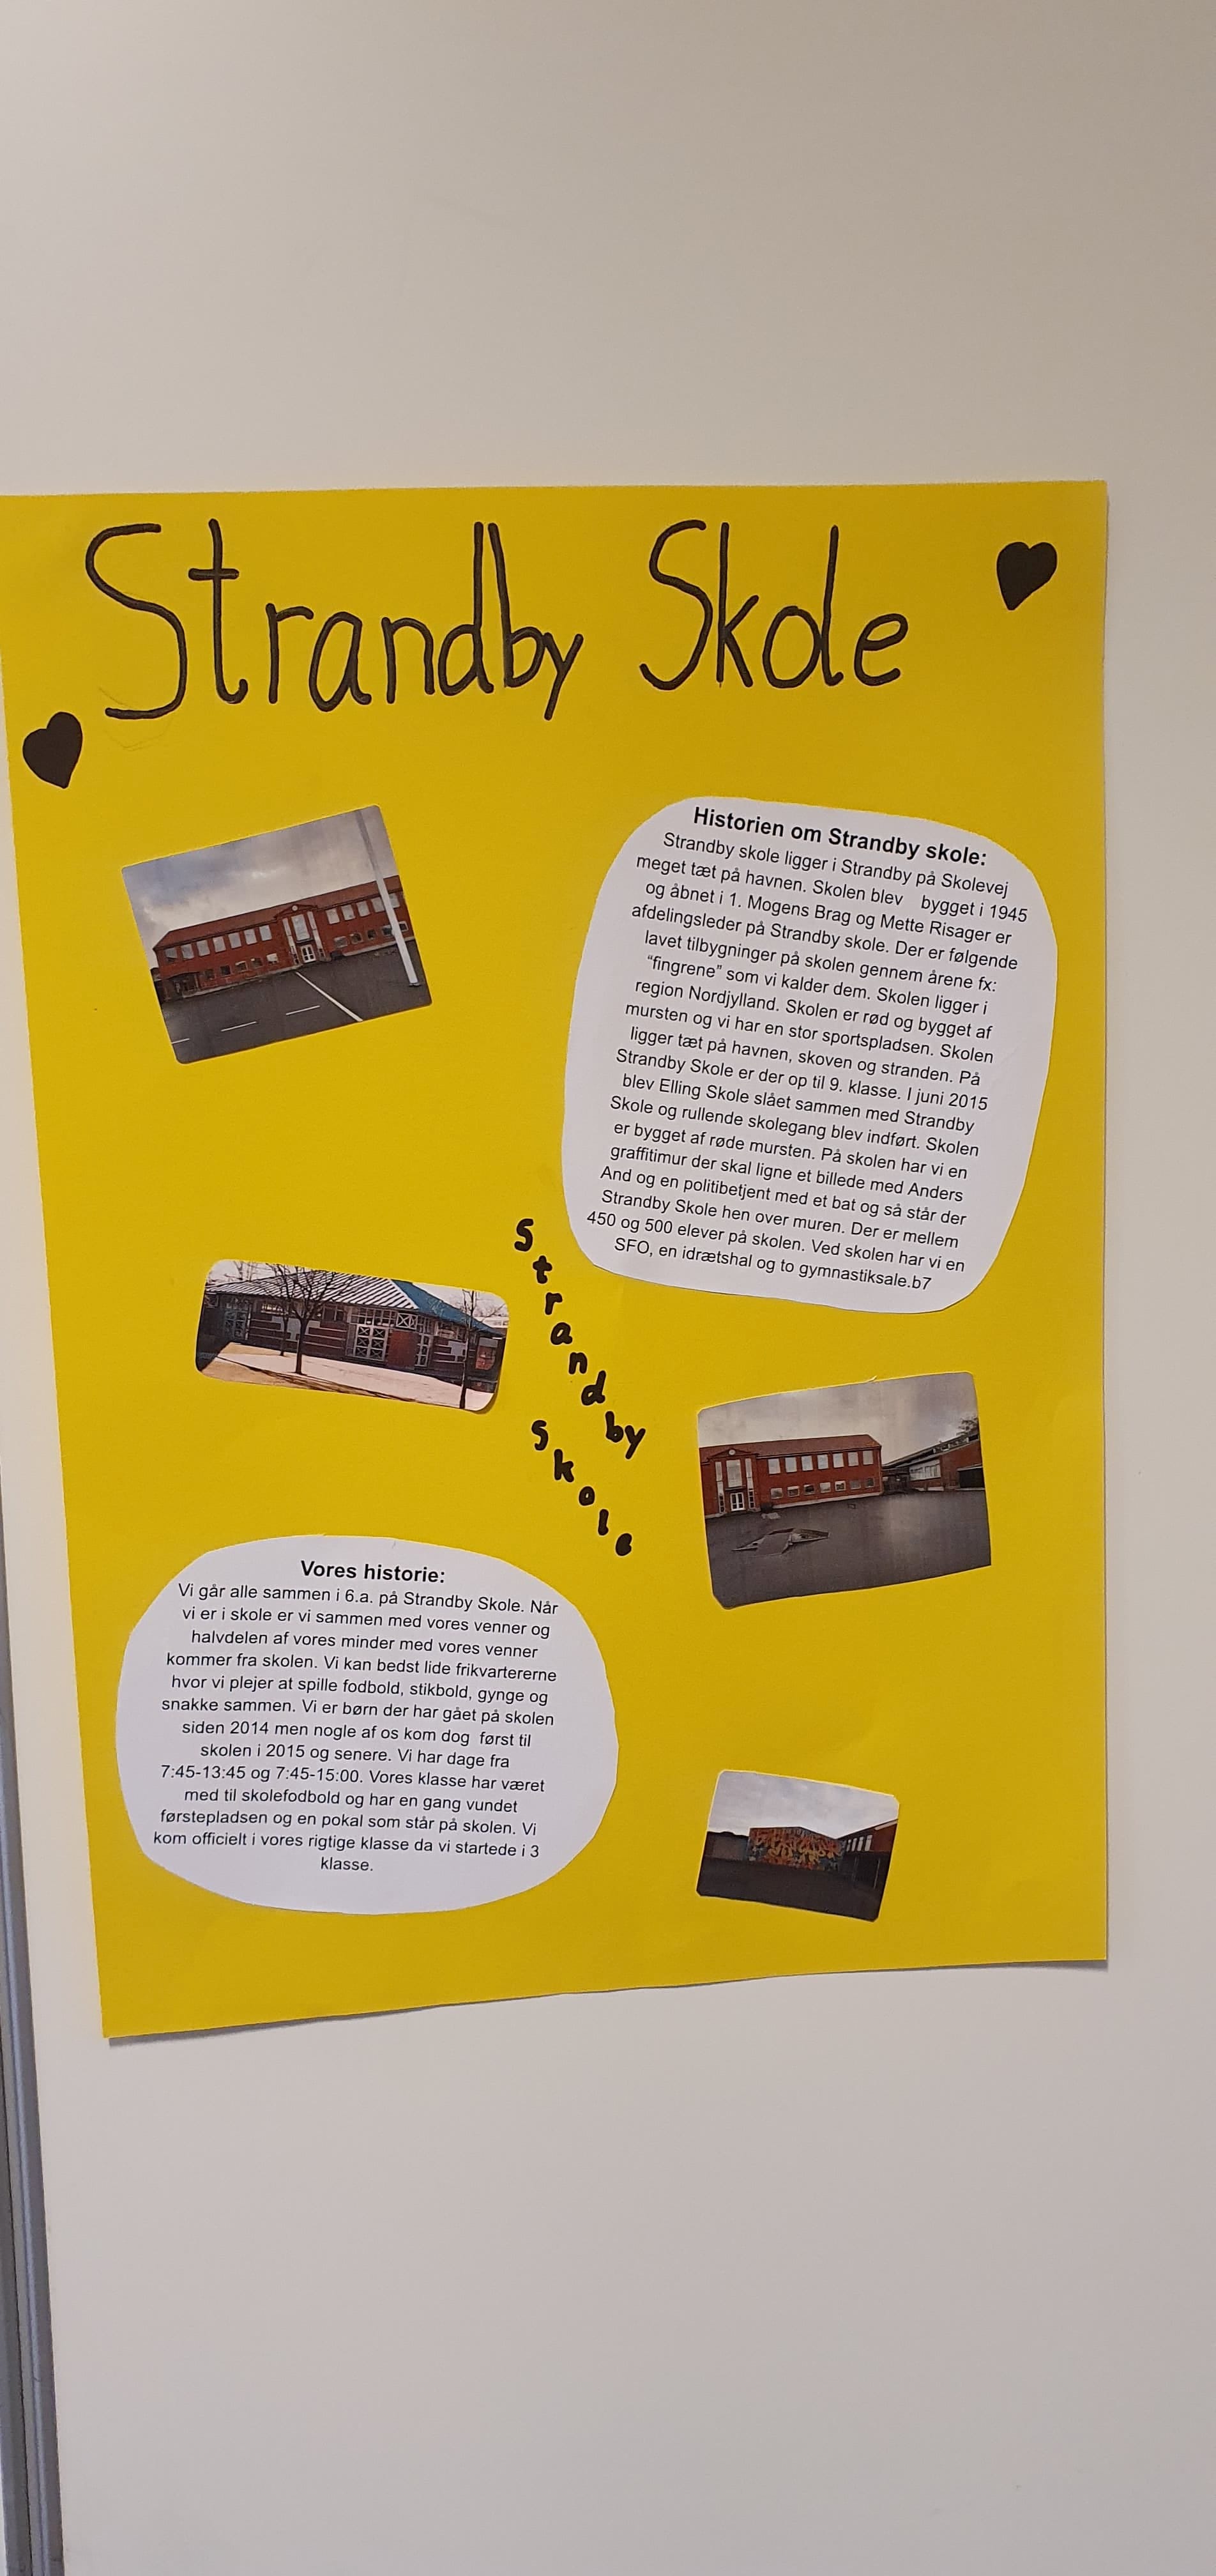 Strandby Skole
Historien om Strandby skole:
Strandby skole ligger i Strandby på Skolevej
meget tæt på havnen. Skolen blev bygget i 1945
og åbnet i 1. Mogens Brag og Mette Risager er
afdelingsleder på Strandby skole. Der er følgende
lavet tilbygninger på skolen gennem årene fx:
“fingrene” som vi kalder dem. Skolen ligger i
region Nordjylland. Skolen er rød og bygget af
mursten og vi har en stor sportspladsen. Skolen
ligger tæt på havnen, skoven og stranden. På
Strandby Skole er der op til 9. klasse. I juni 2015
blev Elling Skole slået sammen med Strandby
Skole og rullende skolegang blev indført. Skolen
er bygget af røde mursten. På skolen har vi en
graffitimur der skal ligne et billede med Anders
And og en politibetjent med et bat og så står der
Strandby Skole hen over muren. Der er mellem
450 og 500 elever på skolen. Ved skolen har vi en
SFO, en idrætshal og to gymnastiksale.b7
Strandby
Skole
Vores historie:
Vi går alle sammen i 6.a. på Strandby Skole. Når
vi er i skole er vi sammen med vores venner og
halvdelen af vores minder med vores venner
kommer fra skolen. Vi kan bedst lide frikvartererne
hvor vi plejer at spille fodbold, stikbold, gynge og
snakke sammen. Vi er børn der har gået på skolen
siden 2014 men nogle af os kom dog først til
skolen i 2015 og senere. Vi har dage fra
7:45-13:45 og 7:45-15:00. Vores klasse har været
med til skolefodbold og har en gang vundet
førstepladsen og en pokal som står på skolen. Vi
kom officielt i vores rigtige klasse da vi startede i 3
klasse.